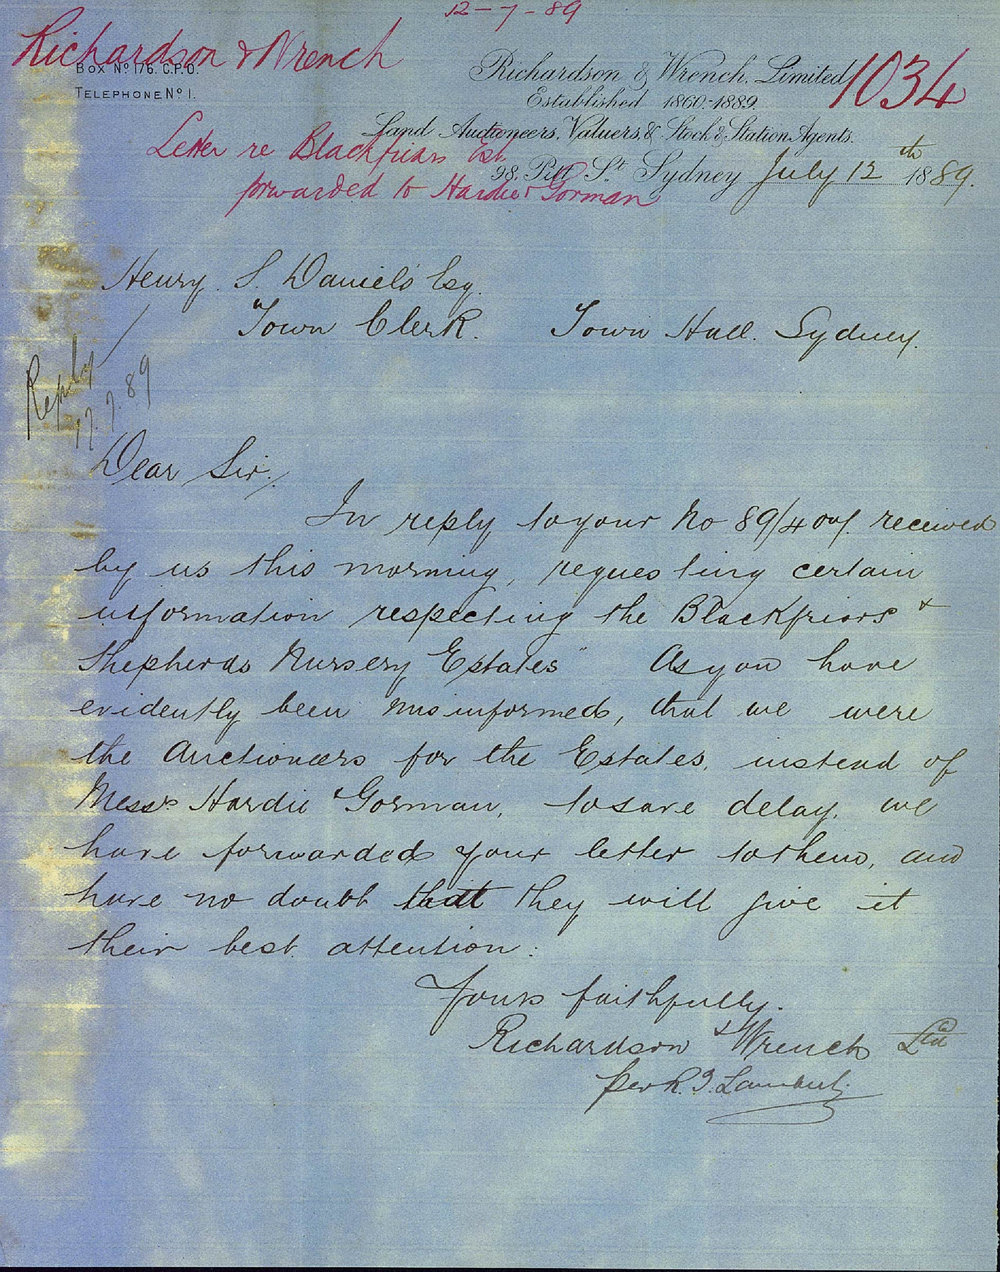 12-7-89
Richardson & Wrench
1034
Box No 176. G.P.O.
Telephone No 1.
Richardson & Wrench, Limited
Established 1860-1889.
Land Auctioneers, Valuers & Stock & Station Agents.
Letter re Blackfriars Est
forwarded to Hardie & Gorman
98. Pitt St Sydney July 12th 1889.
Henry. S. Daniels Esq.
Town Clerk. Town Hall. Sydney.
Reply
17.7.89
Dear Sir.
In reply to your No 89/4 received
by us this morning, requesting certain
information respecting the Blackfriars &
Shepherds Nursery Estates" As you have
evidently been misinformed, that we were
the Auctioneers for the Estates, instead of
Messrs Hardie & Gorman, to save delay, we
have forwarded your letter to them, and
have no doubt that they will give it
their best attention.
Yours faithfully.
Richardson & Wrench Ltd
per R. J. Lambert.